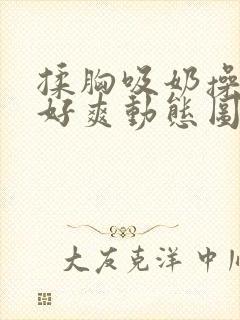 揉胸吸奶操
好爽動態圖
大友克洋 中川